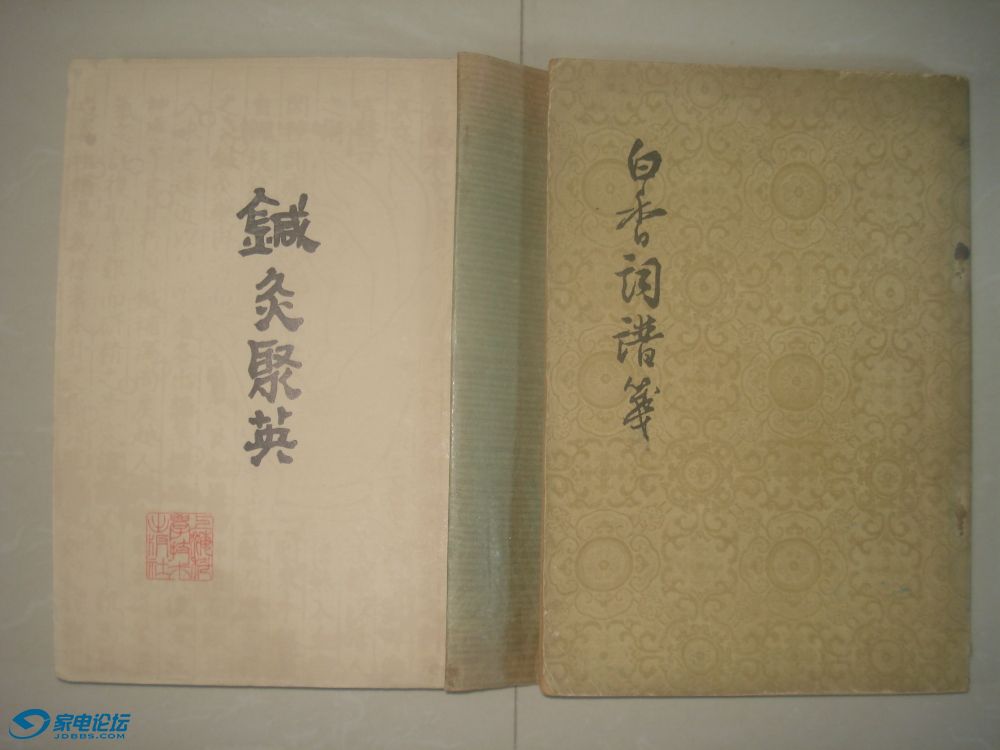 鍼灸聚英
白香词谱笺
上海科
学技术
出版社
家电论坛
JDBBS.COM